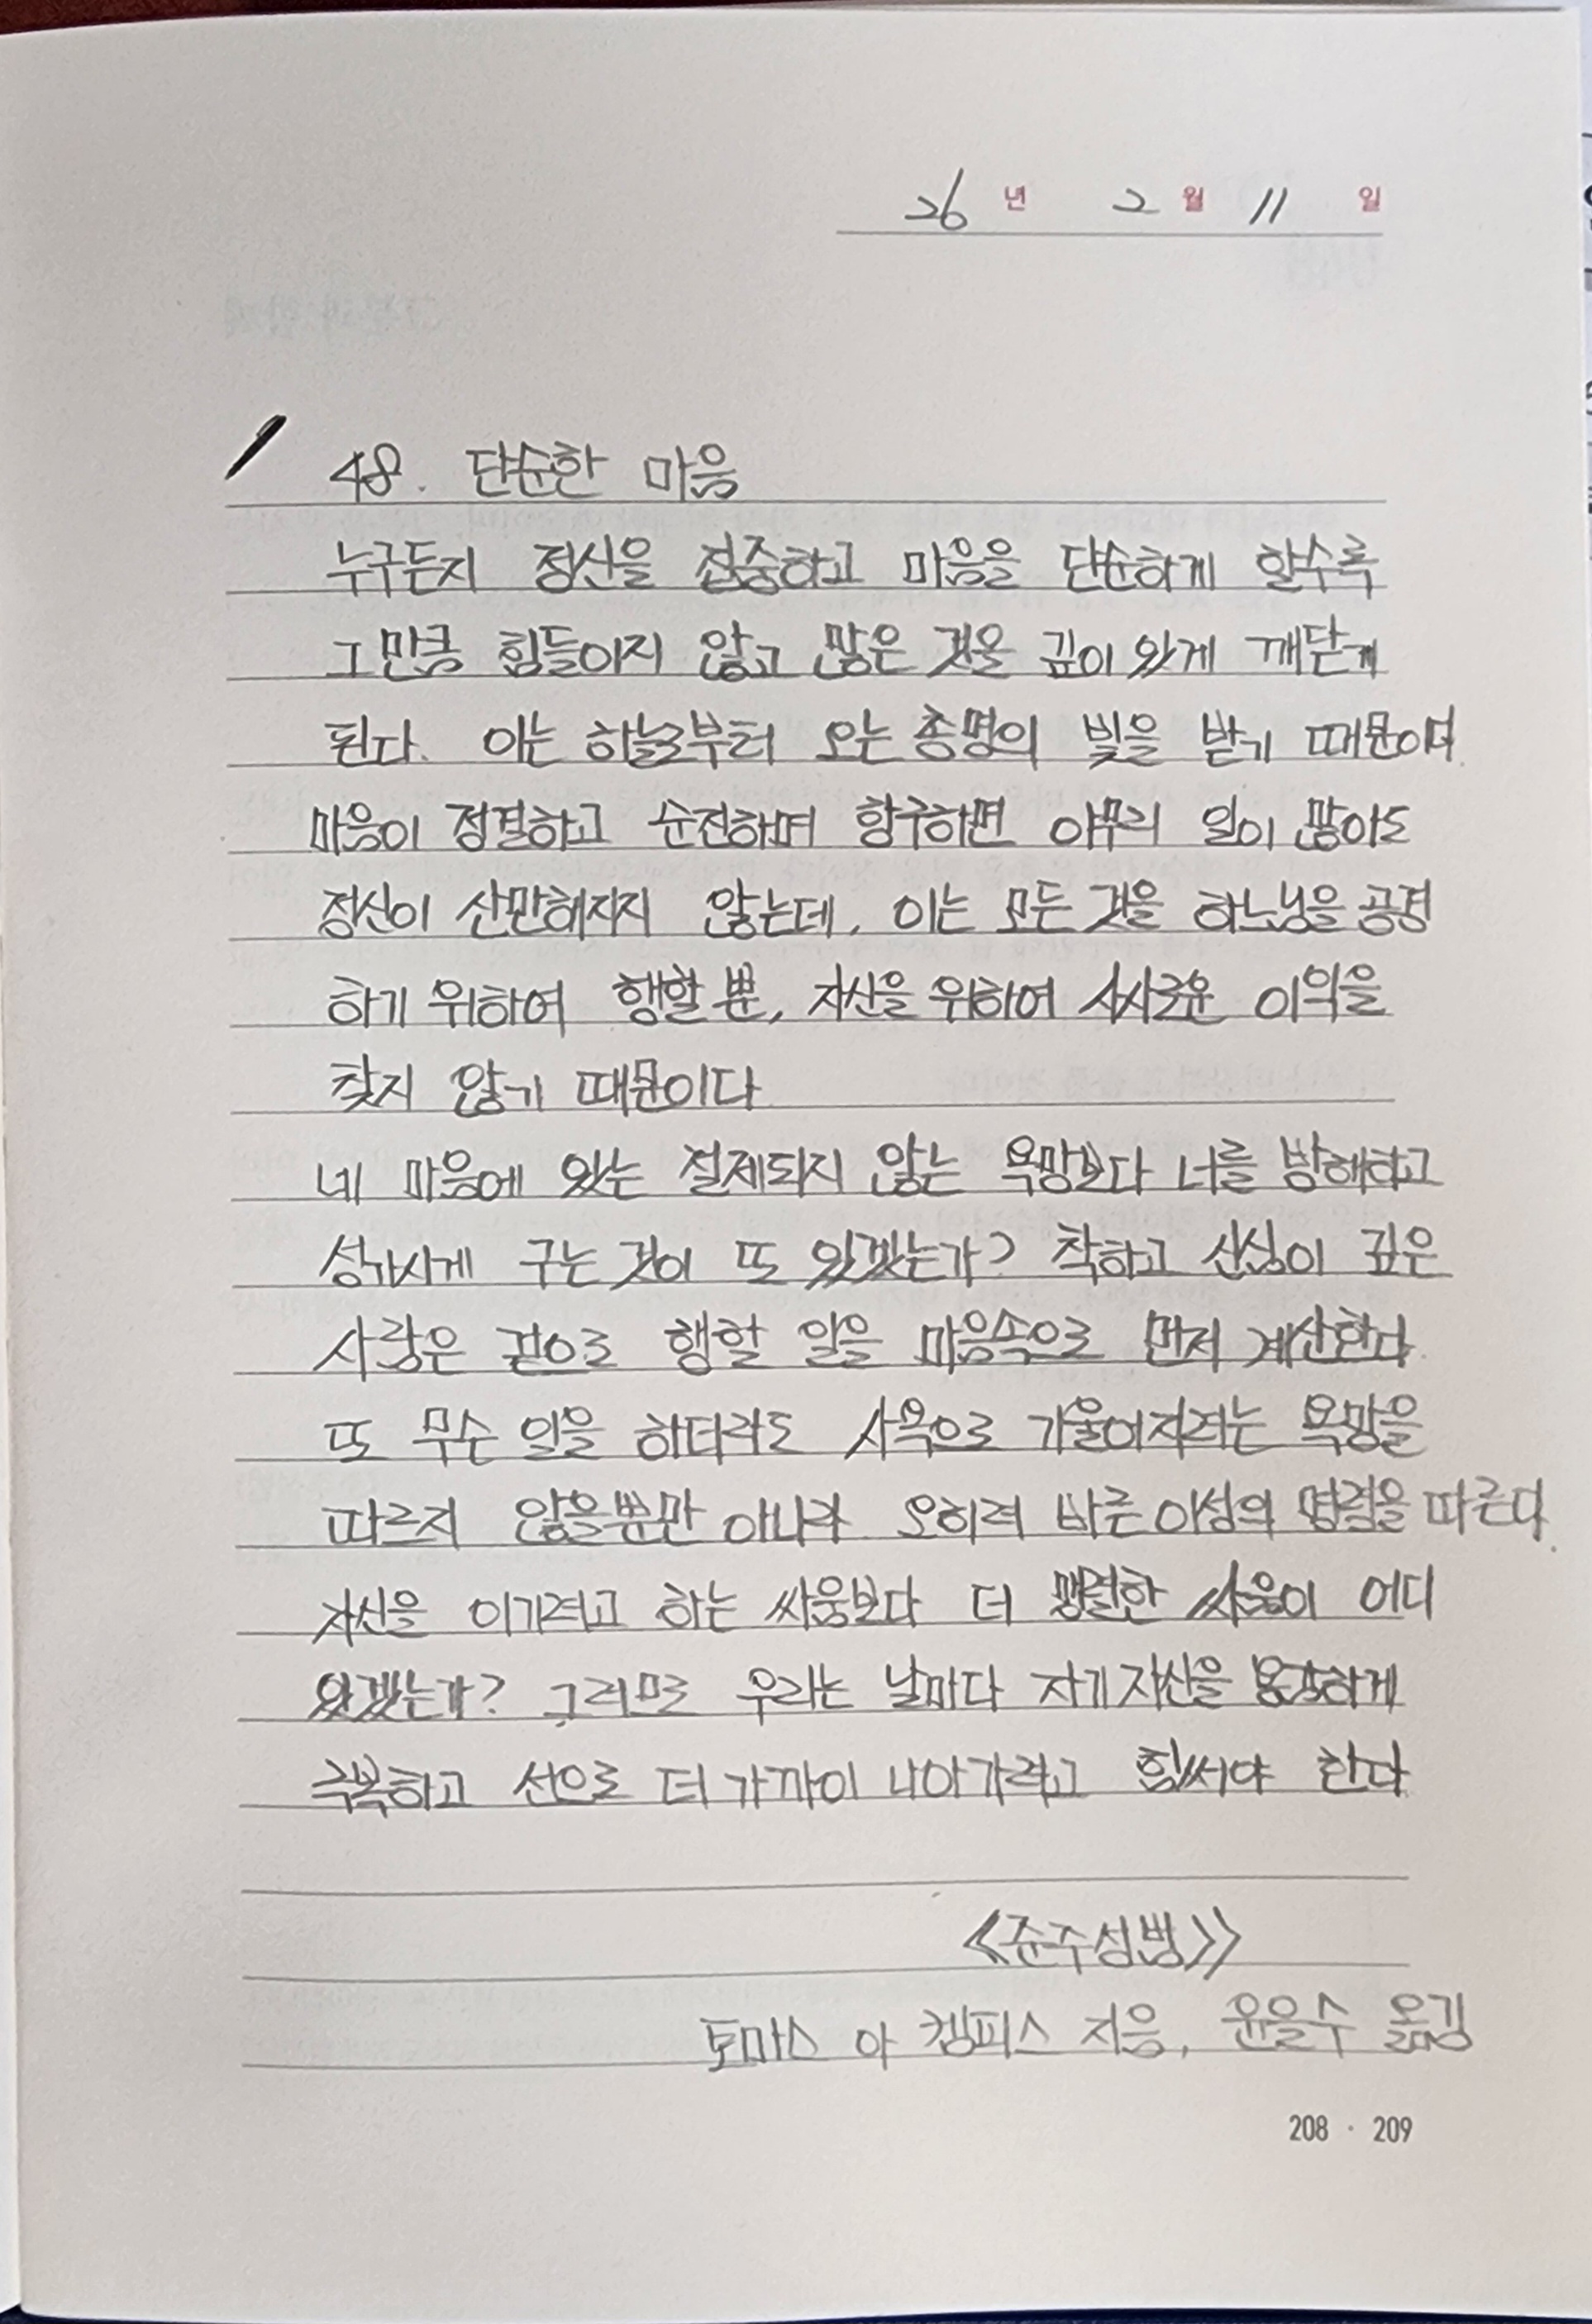 26 년 2 월 11 일
48. 단순한 마음
누구든지 정신을 집중하고 마음을 단순하게 할수록
그만큼 힘들이지 않고 많은 것을 깊이 있게 깨닫게
된다. 이는 하늘로부터 오는 총명의 빛을 받기 때문이다.
마음이 정결하고 순진하며 항구하면 아무리 일이 많아도
정신이 산만해지지 않는데, 이는 모든 것을 하느님을 공경
하기 위하여 행할 뿐, 자신을 위하여 사사로운 이익을
찾지 않기 때문이다
네 마음에 있는 절제되지 않는 욕망보다 너를 방해하고
성가시게 구는 것이 또 있겠는가? 착하고 신심이 깊은
사람은 겉으로 행할 일을 마음속으로 먼저 계산한다.
또 무슨 일을 하더라도 사욕으로 기울어지려는 욕망을
따르지 않을뿐만 아니라 오히려 바른 이성의 명령을 따른다.
자신을 이기려고 하는 싸움보다 더 맹렬한 싸움이 어디
있겠는가? 그러므로 우리는 날마다 자기 자신을 용감하게
극복하고 선으로 더 가까이 나아가려고 힘써야 한다
《준주성범》
토마스 아 켐피스 지음, 윤을수 옮김
208 · 209